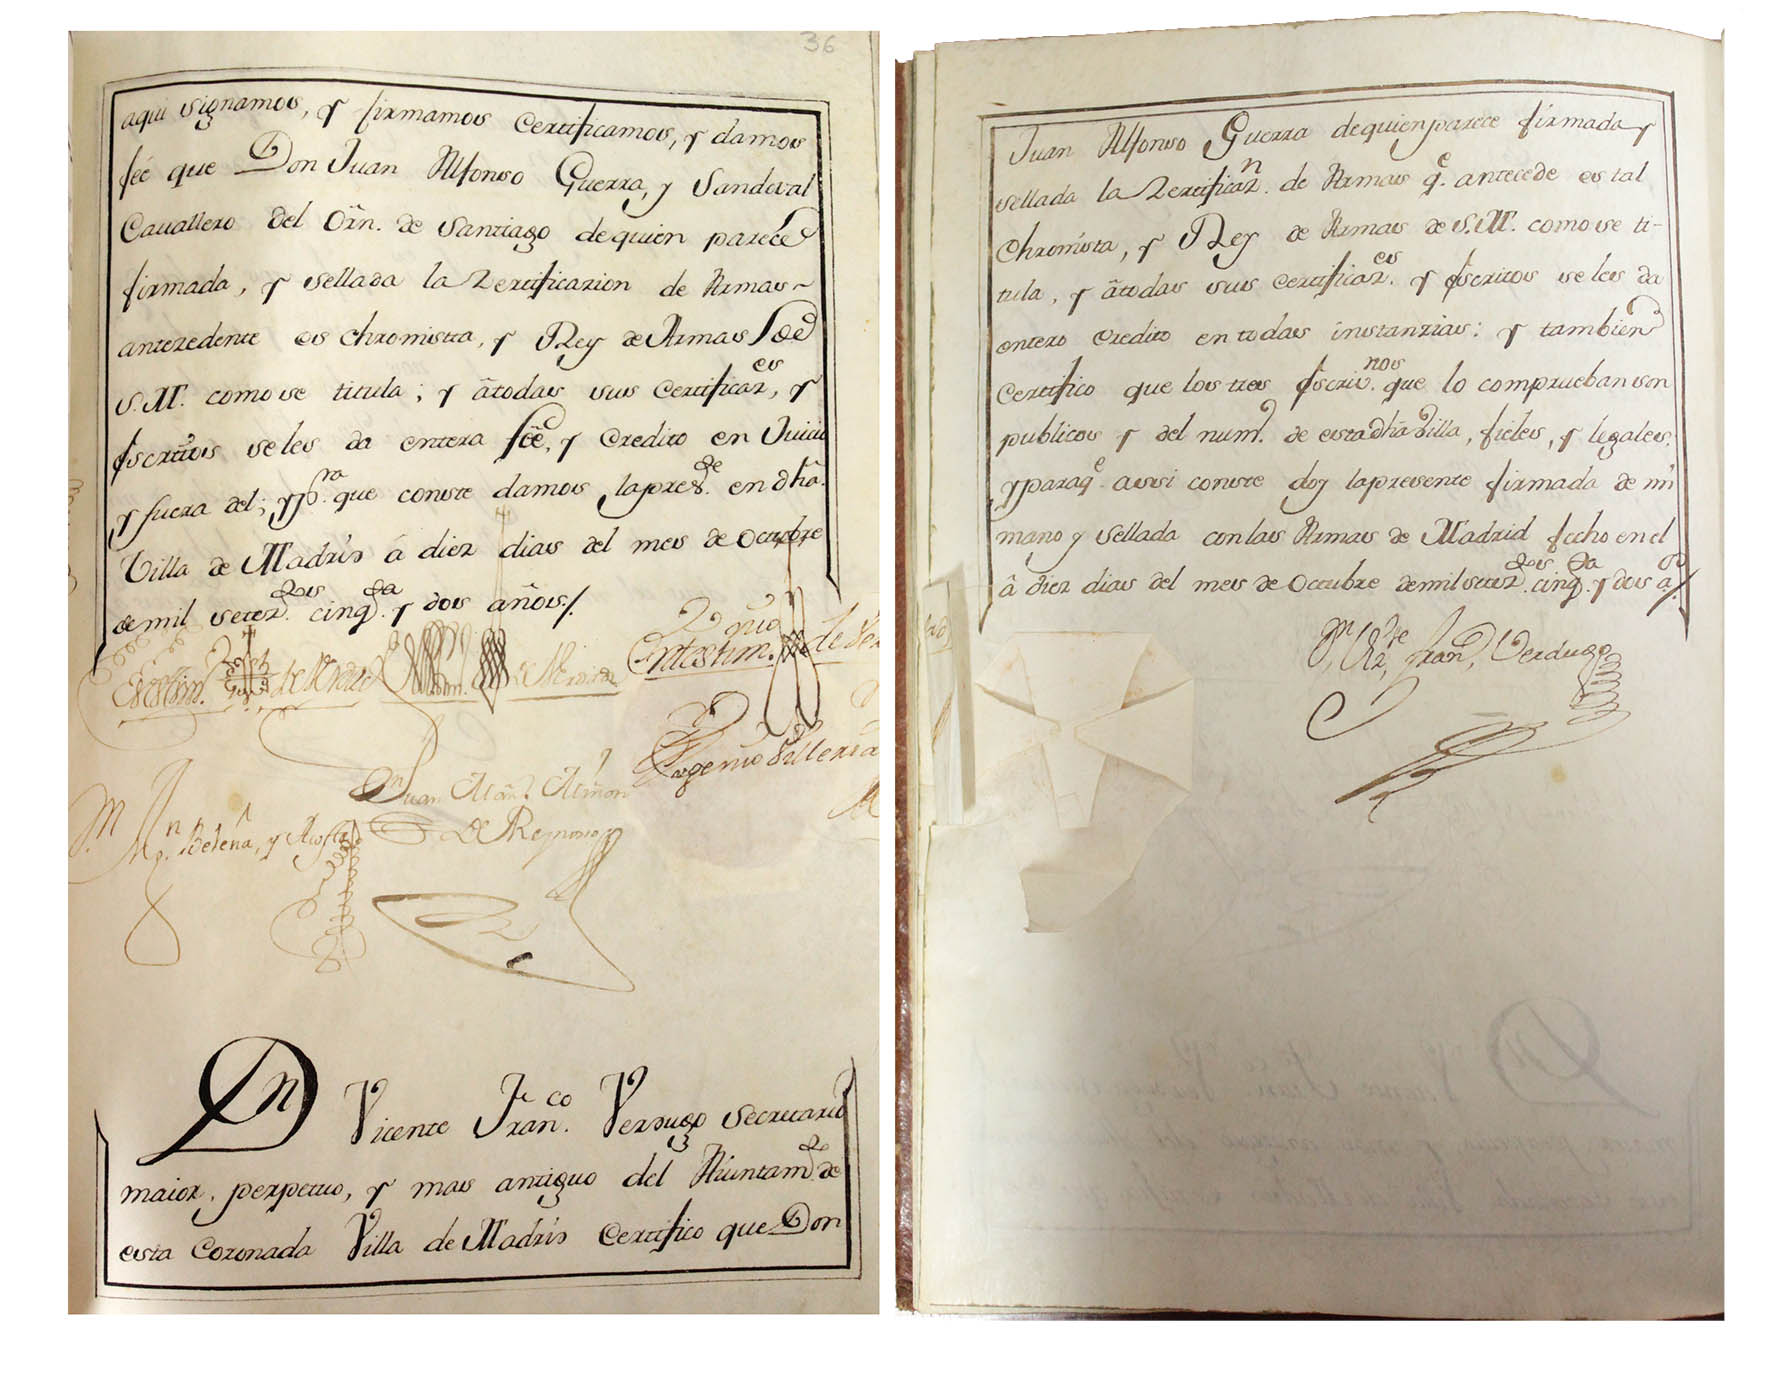 36
aqui signamos, y firmamos Certificamos, y damos
feé que Don Juan Alfonso Guerra, y Sandoval
Cavallero del Orñ. de Santiago de quien parece
firmada, y sellada la Zertificazion de Armas~
antezedente es Chronista, y Rey de Armas de
S. M. como se titula; y âtodas sus Certificaz.es, y
Escritos seles da entera feé, y Credito en Juicio
y fuera del; yp.ra que conste damos lapres.te en dhâ.
Villa de Madrid á diez dias del mes de Octubre
demil setez.dos cinq.ta y dos años/.
Entestim.
Entestim.
Eugenio Villeria
Juan
Beleña, y
De Reynoso
Dn Vicente Fran.co Verdugo Secretario
maior, perpetuo, y mas antiguo del Aiuntam.to de
esta Coronada Villa de Madrid Certifico que Don
Juan Alfonso Guerra dequienparece firmada y
sellada la Zertificaz.n de Armas q.e antecede es tal
Chronista, y Rey de Armas de S. M. como se ti-
tula, y âtodas sus Certificaz.es y Escritos seles da
entero Credito en todas instanzias: y tambien
Certifico que los tres Escriv.nos que lo comprueban son
publicos y del num.o de esta dhâ Villa, fieles, y legales.
yparaq.e assi conste doy lapresente firmada de mi
mano y sellada conlas Armas de Madrid fecho en el
â diez dias del mes de Octubre demil setez.dos cinq.ta y dos a.s/
Fran, Verdugo